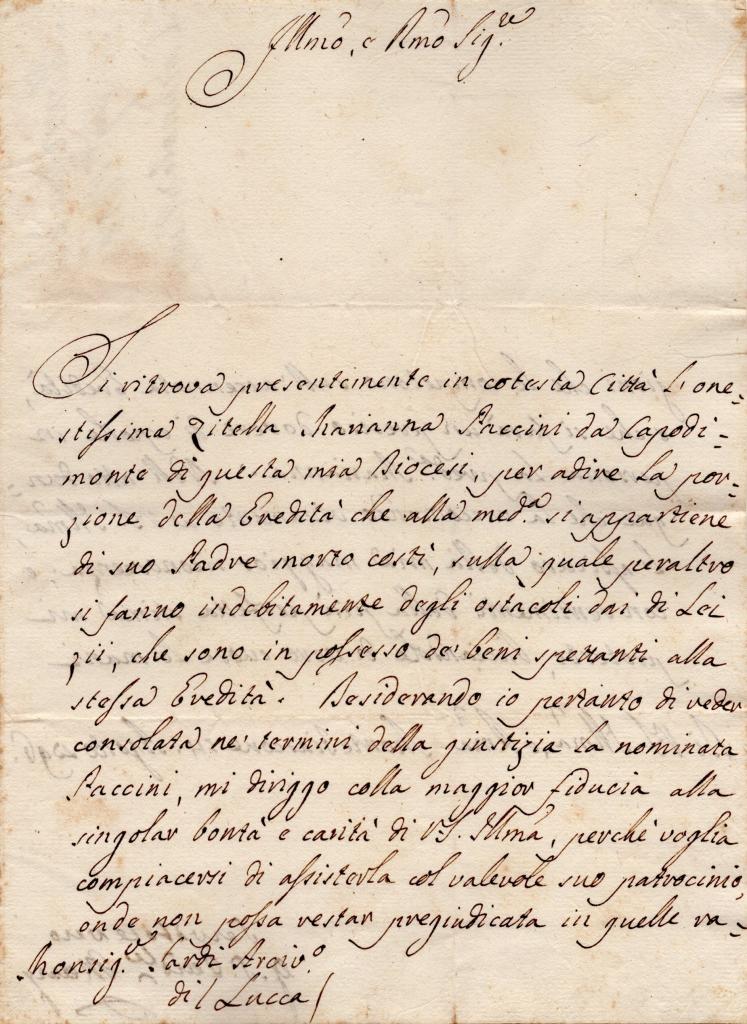 Illmo, e Rmo Sig.re
Si ritrova presentemente in cotesta Città l'one=
stissima Zitella Marianna Paccini da Capodi=
monte di questa mia Diocesi, per adire la por=
zione della Eredità che alla med.a si appartiene
di suo Padre morto costì, sulla quale peraltro
si fanno indebitamente degli ostàcoli dai di Lei
zii, che sono in possesso de' beni spettanti alla
stessa Eredità. Desiderando io pertanto di veder
consolata ne' termini della giustizia la nominata
Paccini, mi diriggo colla maggior fiducia alla
singolar bontà e carità di VS. Illma, perchè voglia
compiacersi di assisterla col valevole suo patrocinio,
onde non possa restar pregiudicata in quelle ra=
Monsig.re Sardi Arciv.o
di / Lucca /